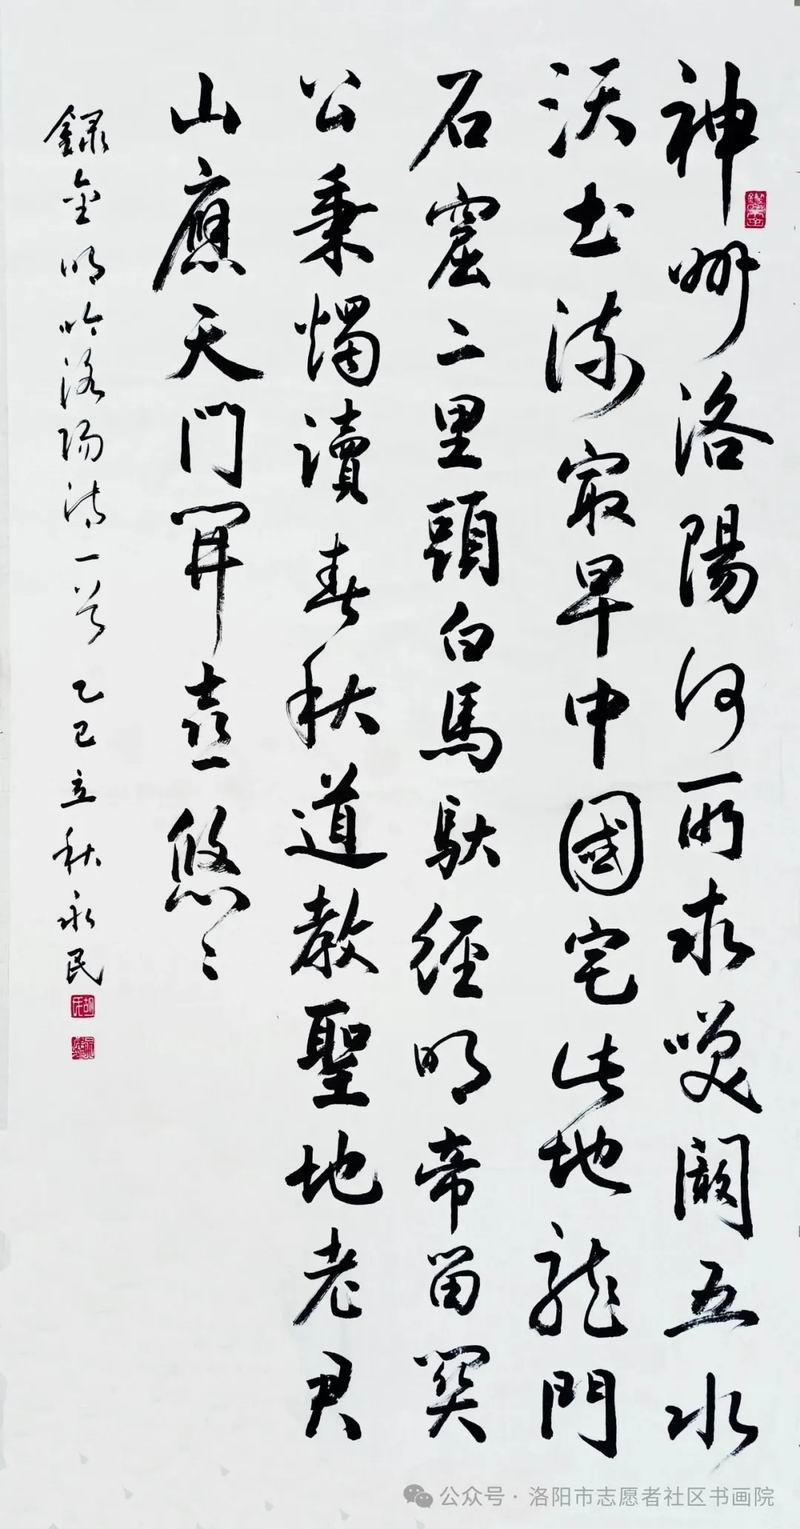 神州洛陽何所求闕五水
沃土流最早中國宅此地龍門
石窟二里頭白馬馱經明帝留關
公秉燭讀春秋道教聖地老君
山應天門開喜悠〻
録金明吟洛陽詩一首 乙巳立秋永民
公众号·洛阳市志愿者社区书画院